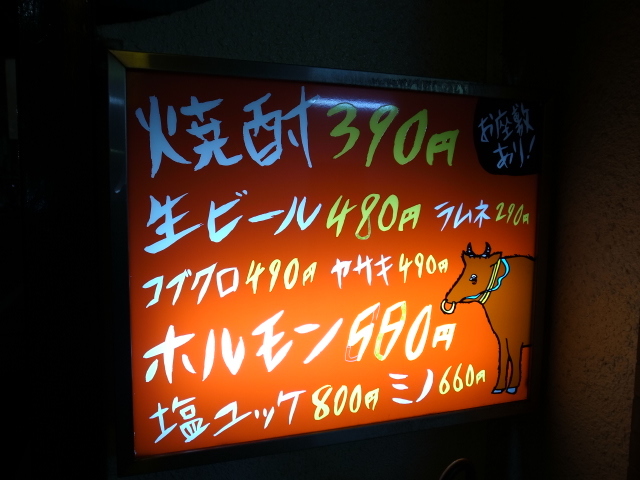 焼酎390円
お座敷
あり!
生ビール480円 ラムネ290円
コブクロ490円 ヤサキ490円
ホルモン580円
塩ユッケ800円 ミノ660円